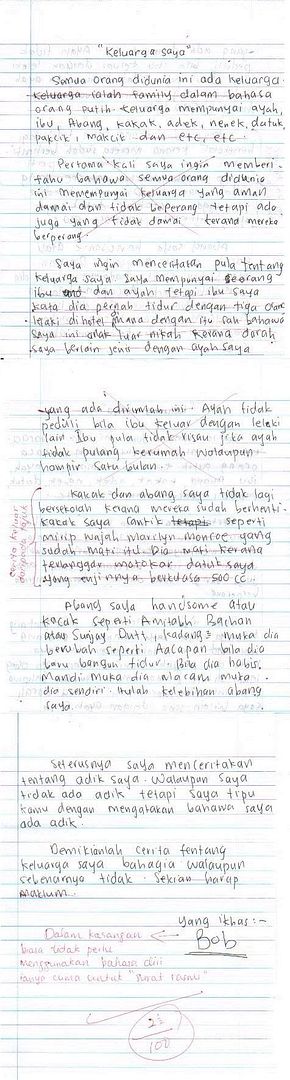 "Keluarga saya"
Semua orang didunia ini ada keluarga.
Keluarga ialah family dalam bahasa
orang putih. Keluarga mempunyai ayah,
ibu, Abang, kakak, adek, nenek, datuk,
pakcik, makcik dan etc, etc.
Pertama kali saya ingin memberi-
tahu bahawa semua orang didunia
ini mempunyai keluarga yang aman
damai dan tidak beperang tetapi ada
juga yang tidak damai kerana mereka
berperang.
Saya ingin menceritakan pula tentang
keluarga saya. Saya mempunyai seorang
ibu dan ayah tetapi ibu saya
kata dia pernah tidur dengan tiga orang
lelaki dihotel dimana dengan itu sah bahawa
saya ini anak luar nikah kerana darah
saya berlain jenis dengan ayah saya
yang ada dirumah ini. Ayah tidak
peduli bila ibu keluar dengan lelaki
lain. Ibu pula tidak risau jika ayah
tidak pulang kerumah walaupun
hampir satu bulan.
Kakak dan abang saya tidak lagi
bersekolah kerana mereka sudah berhenti.
kakak saya cantik tetapi seperti
mirip wajah marclyn monroe yang
sudah mati itu. Dia mati kerana
terlanggar motokar datuk saya
yang enjinnya berkuasa 500 cc.
cerita keluar
daripada tajuk
Abang saya handsome atau
kacak seperti Amitabh Bachan
atau Sunjay Dutt, kadang2 muka dia
berubah seperti Aacapan bila dia
baru bangun tidur. Bila dia habis
Mandi muka dia macam muka
dia sendiri. Itulah kelebihan abang
saya.
Seterusnya saya menceritakan
tentang adik saya. Walaupun saya
tidak ada adik tetapi saya tipu
kamu dengan mengatakan bahawa saya
ada adik.
Demikianlah cerita tentang
keluarga saya bahagia walaupun
sebenarnya tidak. Sekian harap
maklum.
Yang ikhas:-
Bob
Dalam karangan
biasa tidak perlu
menggunakan bahasa diri
hanya cuma untuk "surat rasmi"
2½
100